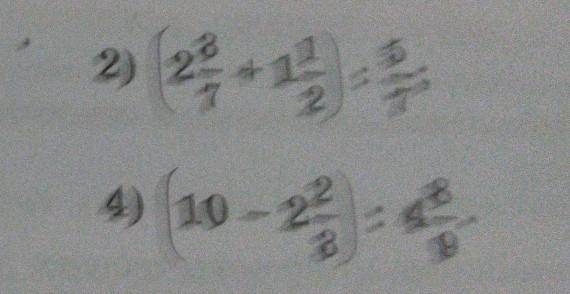 2) (2 3/7 + 1 1/2) : 5/7;
4) (10 − 2 2/3) : 4 8/9.